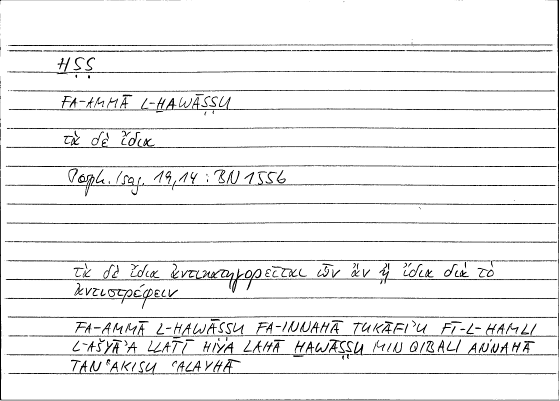 ḪṢṢ
FA-AMMĀ L-ḪAWĀṢṢU
τὰ δὲ ἴδια
Porph. Isag. 19,14 : BN 1556
τὰ δὲ ἴδια ἀντικατηγορεῖται ὧν ἂν ᾖ ἴδια διὰ τὸ
ἀντιστρέφειν
FA-AMMĀ L-ḪAWĀṢṢU FA-INNAHĀ TUKĀFIʾU FĪ-L-ḤAMLI
L-AŠYĀʾA LLATĪ HIYA LAHĀ ḪAWĀṢṢU MIN QIBALI ANNAHĀ
TANʿAKISU ʿALAYHĀ